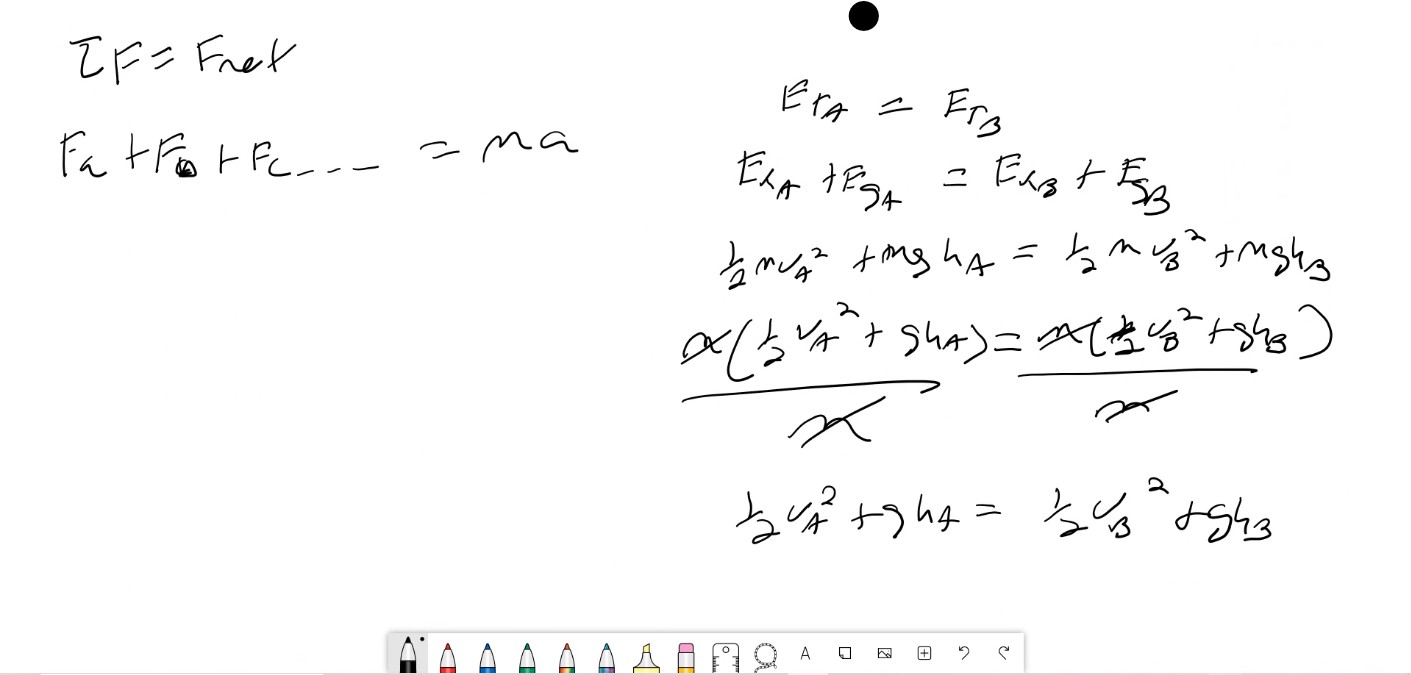 ΣF = Fnet
Fa + Fb + Fc--- = ma
E_TA = E_TB
E_kA + E_gA = E_kB + E_gB
½mv_A² + mgh_A = ½mv_B² + mgh_B
m(½v_A² + gh_A) = m(½v_B² + gh_B)
m m
½v_A² + gh_A = ½v_B² + gh_B
A